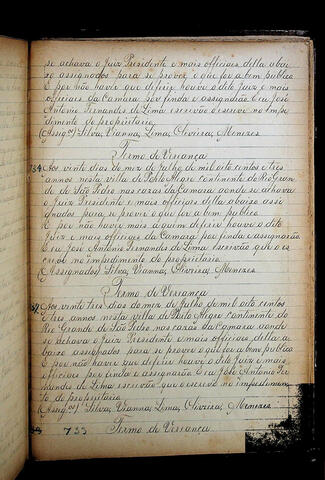 se achava o Juiz Presidente e mais officiaes della abai
xo assignados para se prover o que for a bem publico
E por não haver que deferir houve dito Juiz e mais
officiaes da Camara por finda e assignárão Eu José
Antonio Fernandes de Lima escrivão o escrevi no impe
dimento do proprietario
(Assig.os) Silva, Vianna, Lima, Oliveira, Menezes
Termo de Veriança
Aos vinte dias do mez de Julho de mil oito centos e tres
annos nesta villa de Porto Alegre continente do Rio Gran
de de São Pedro nas cazas da Camara aonde se achava
o Juiz Presidente e mais officiaes della abaixo assi
gnados para se prover o que for a bem publico
E por não haver mais a quem deferir houve o dito
Juiz e mais officiaes da Camara por finda e assignárão
Eu José Antonio Fernandes de Lima escrivão que o es
crevi no impedimento do proprietario
(Assignados) Silva, Vianna, Oliveira, Menezes
Termo de Veriança
Aos vinte tres dias do mez de Julho de mil oito centos
e tres annos nesta villa de Porto Alegre continente do
Rio Grande de São Pedro nas cazas da Camara aonde
se achava o Juiz Presidente e mais officiaes della a
baixo assignados para se prover o que for a bem publico
E por não haver que deferir houve o dito Juiz e mais
officiaes por finda e assignárão Eu José Antonio Fer
nandes de Lima escrivão que o escrevi no impedimen
to do proprietario
(Assig.os) Silva, Vianna, Lima, Oliveira, Menezes
733 Termo de Veriança